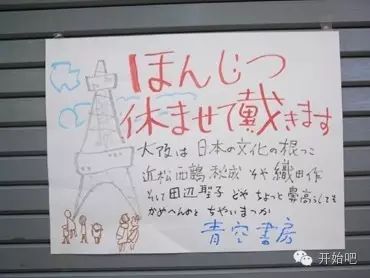 ほんじつ
休ませて戴きます
大阪は日本の文化の根っこ
近松西鶴秋成 今や織田作
そして田辺聖子 どや ちょっと鼻高うしても
かめへんのと ちゃいまっか
青空書房
开始吧